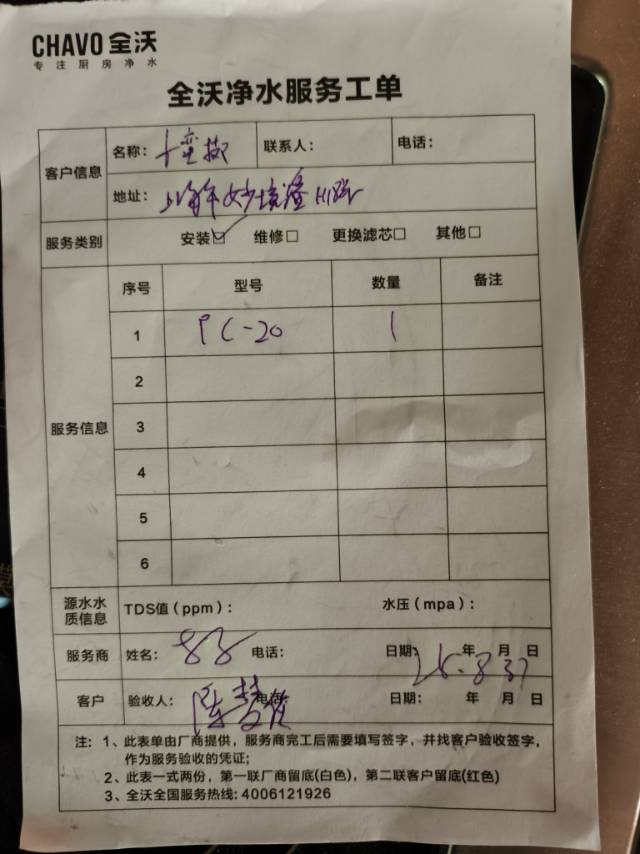 CHAVO 全沃
专注厨房净水
全沃净水服务工单
客户信息 名称： 联系人： 电话：
地址：
服务类别 安装☑ 维修□ 更换滤芯□ 其他□
服务信息 序号 型号 数量 备注
1 PC-20 1
2
3
4
5
6
源水水质信息 TDS值（ppm）： 水压（mpa）：
服务商 姓名： 电话： 日期： 年 月 日
客户 验收人： 陈 电话： 日期： 年 月 日
注：1、此表单由厂商提供，服务商完工后需要填写签字，并找客户验收签字，
作为服务验收的凭证；
2、此表一式两份，第一联厂商留底(白色)，第二联客户留底(红色)
3、全沃全国服务热线: 4006121926